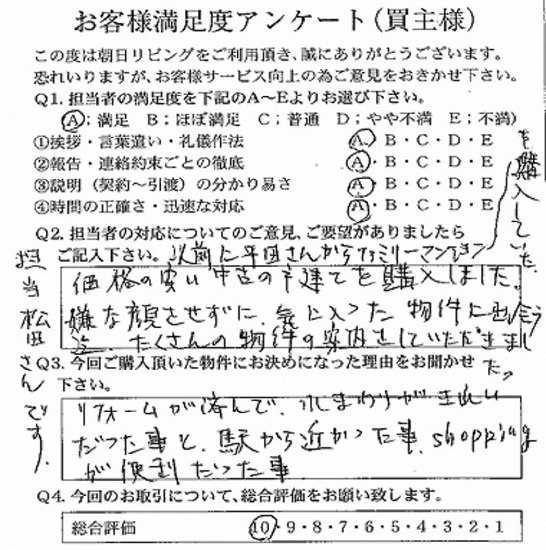 お客様満足度アンケート(買主様)
この度は朝日リビングをご利用頂き、誠にありがとうございます。
恐れいりますが、お客様サービス向上の為ご意見をおきかせ下さい。
Q1. 担当者の満足度を下記のA～Eよりお選び下さい。
A;満足 B;ほぼ満足 C;普通 D;やや不満 E;不満)
①挨拶・言葉遣い・礼儀作法 A・B・C・D・E
②報告・連絡約束ごとの徹底 A・B・C・D・E
③説明（契約～引渡）の分かり易さ A・B・C・D・E
④時間の正確さ・迅速な対応 A・B・C・D・E
Q2. 担当者の対応についてのご意見、ご要望がありましたら
ご記入下さい。以前に平田さんからファミリーマンション
を購入していた
価格の安い中古の戸建てを購入しました。
嫌な顔させずに、気に入った物件に出会う
迄、たくさんの物件の案内をしていただきまし
た。
担当松田さんです。
Q3. 今回ご購入頂いた物件にお決めになった理由をお聞かせ
下さい。
リフォームが済んで、水まわりがきれい
だった事と、駅から近かった事、shopping
が便利だった事
Q4. 今回のお取引について、総合評価をお願い致します。
総合評価 10・9・8・7・6・5・4・3・2・1